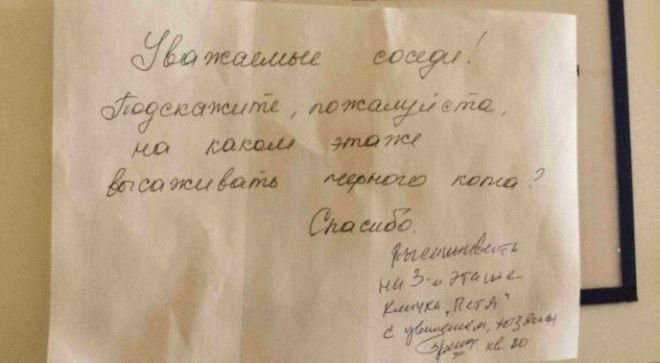 Уважаемые соседи!
Подскажите, пожалуйста,
на каком этаже
высаживать черного кота?
Спасибо.
на 3-м этаже
кличка "Петя"
с уважением, хозяин
кв. 80